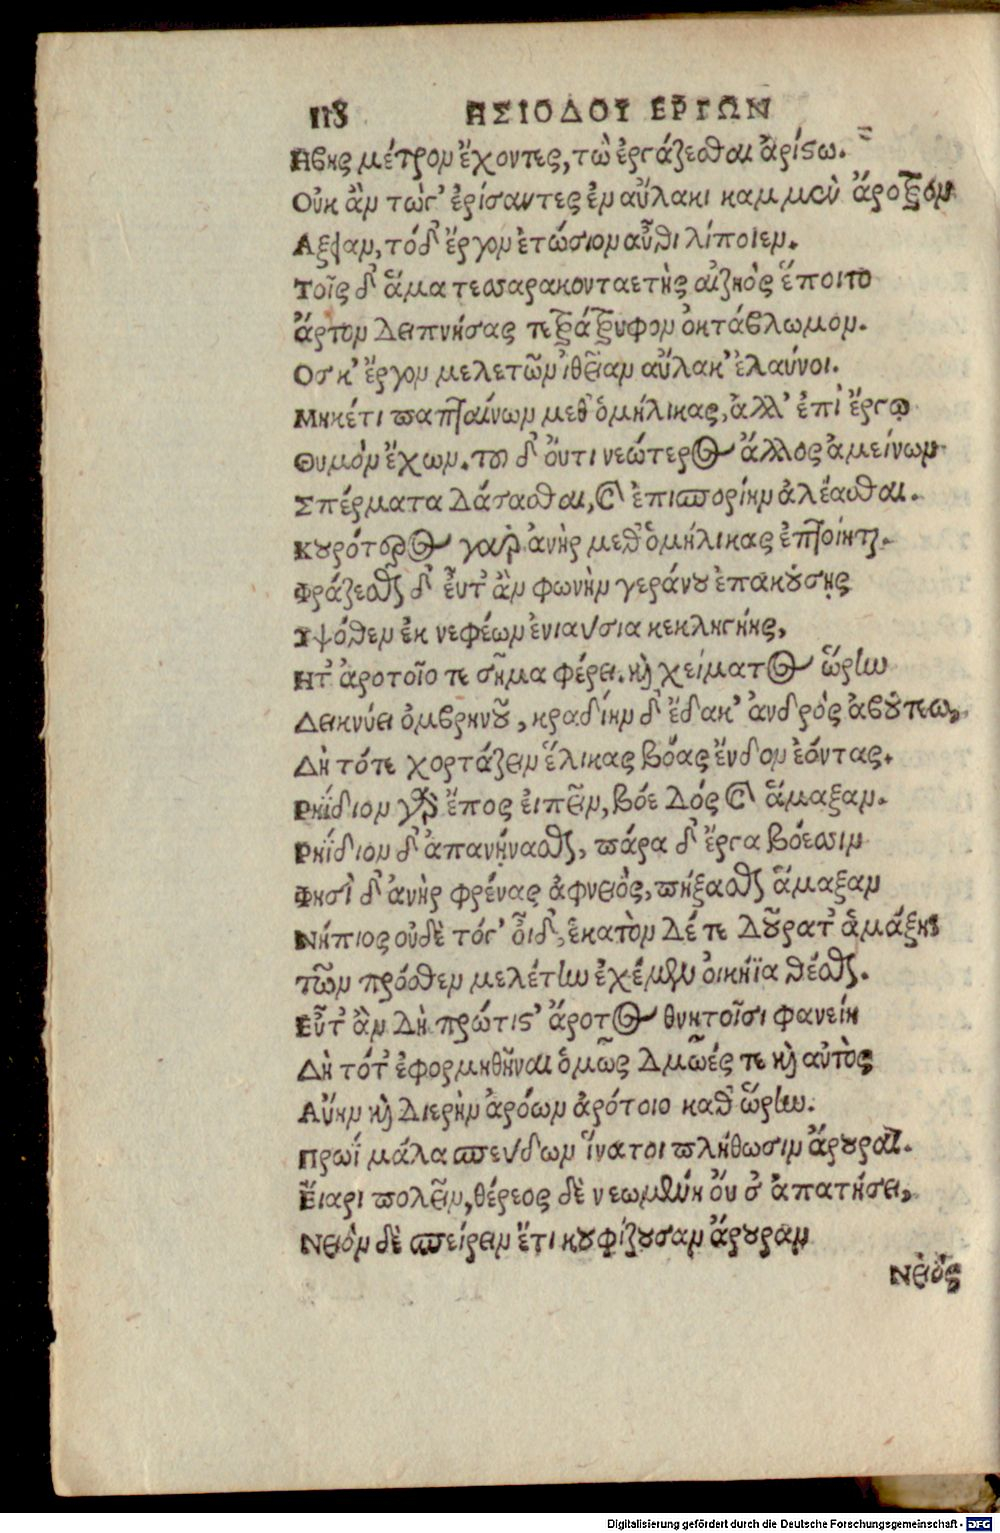 118 ΗΣΙΟΔΟΥ ΕΡΓΩΝ
Ηβης μέτρον ἔχοντες, τὼ ἐργάζεσθαι ἀρίστω.
Οὐκ ἂν τώγ' ἐρίσαντες ἐν αὔλακι καμ μὲν ἄροτρον
Αξειαν, τὸ δ' ἔργον ἐτώσιον αὖθι λίποιεν.
Τοῖς δ' ἅμα τεσσαρακονταετὴς αἰζηὸς ἕποιτο
ἄρτον δειπνήσας τετράτρυφον ὀκτάβλωμον.
Οσ κ' ἔργον μελετῶν ἰθεῖαν αὔλακ' ἐλαύνοι.
Μηκέτι παπταίνων μεθ' ὁμήλικας, ἀλλ' ἐπὶ ἔργῳ
Θυμὸν ἔχων. τοῦ δ' οὔτι νεώτερος ἄλλος ἀμείνων
Σπέρματα δάσασθαι, καὶ ἐπισπορίην ἀλέασθαι.
Κουρότερος γαρ ἀνὴρ μεθ' ὁμήλικας ἐπτοίηται.
Φράζεσθαι δ' εὖτ' ἂν φωνὴν γεράνου ἐπακούσῃς
Υψόθεν ἐκ νεφέων ἐνιαύσια κεκληγυίης,
Ητ' ἀροτοῖο τε σῆμα φέρει. καὶ χείματος ὥρην
Δεικνύει ὀμβρηνοῦ, κραδίην δ' ἔδακ' ἀνδρὸς ἀβούτεω,
Δὴ τότε χορτάζειν ἕλικας βόας ἔνδον ἐόντας.
Ρηΐδιον γὰρ ἔπος εἰπεῖν, βόε δὸς καὶ ἅμαξαν.
Ρηΐδιον δ' ἀπανήνασθαι, πάρα δ' ἔργα βόεσσιν
Φησὶ δ' ἀνὴρ φρένας ἀφνειὸς, πήξασθαι ἅμαξαν
Νήπιος οὐδὲ τόγ' οἶδ', ἑκατὸν δέ τε δούρατ' ἁμάξης
τῶν πρόσθεν μελέτην ἐχέμεν οἰκήϊα θέσθαι.
Εὖτ' ἂν δὴ πρώτιστ' ἄροτος θνητοῖσι φανείη
Δὴ τότ' ἐφορμηθῆναι ὁμῶς δμῶές τε καὶ αὐτὸς
Αὔην καὶ διερὴν ἀρόων ἀρότοιο καθ' ὥρην.
Πρωῒ μάλα σπεύδων ἵνα τοι πλήθωσιν ἄρουραι.
Εἴαρι πολεῖν, θέρεος δὲ νεωμένη οὔ σ' ἀπατήσει,
Νειὸν δὲ σπείρειν ἔτι κουφίζουσαν ἄρουραν
Νειὸς
Digitalisierung gefördert durch die Deutsche Forschungsgemeinschaft - DFG